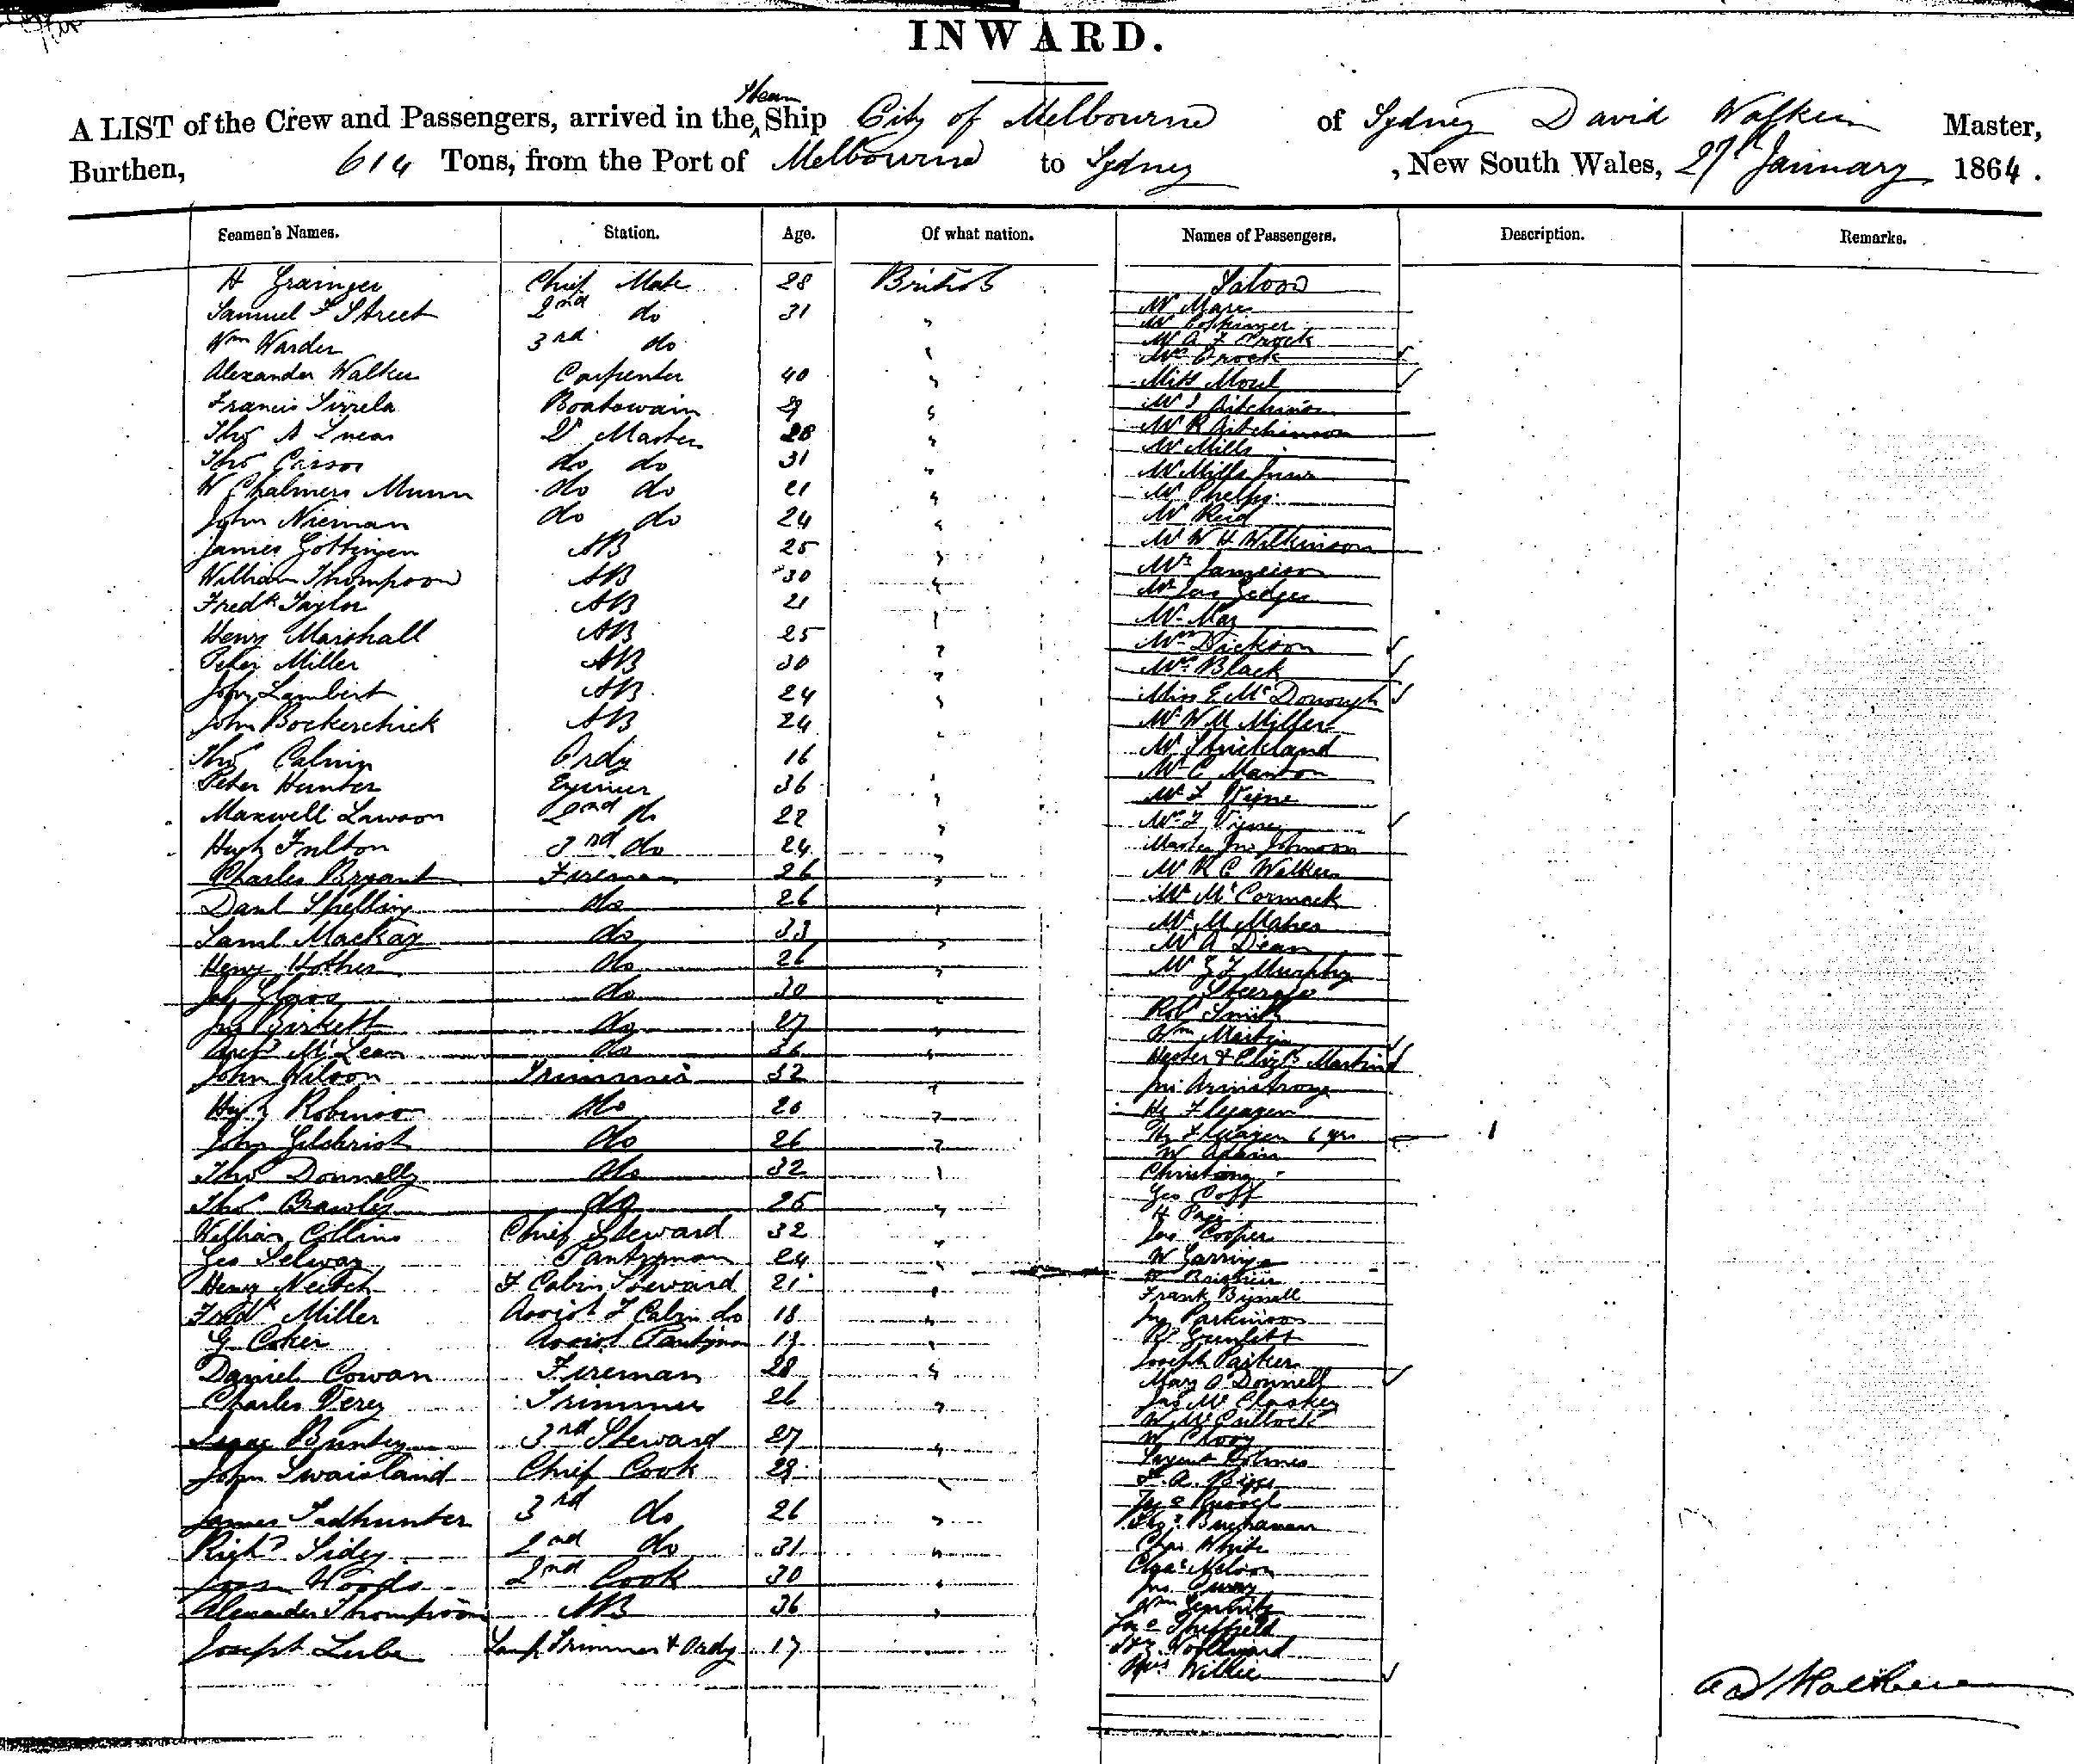 INWARD.
Steam
A LIST of the Crew and Passengers, arrived in the Ship City of Melbourne of Sydney David Walker Master,
Burthen, 614 Tons, from the Port of Melbourne to Sydney , New South Wales, 27th January 1864.
Seamen's Names. Station. Age. Of what nation. Names of Passengers. Description. Remarks.
H Grainger Chief Mate 28 British Saloon
Samuel F Street 2nd do 31 " Mr Mare
Mr Coppinger
Wm Warder 3rd do " Mr A F Crock
Mrs Crock
Alexander Walker Carpenter 40 " Miss Moul
Francis Boatswain 29 " Mr J Aitchinson
Thos A Lucas Qr Master 28 " Mr R Aitchinson
Mr Mills
Thos Carson do do 31 " Mr Mills Junr
W Chalmers Munn do do 21 " Mr Phelps
John Nieman do do 24 " Mr Reid
James Gottingen AB 25 " Mr W H Wilkinson
William Thompson AB 30 " Mr Jamieson
Fredk Taylor AB 21 " Mr Jas
Mr May
Henry Marshall AB 25 " Mrs Dickson
Peter Miller AB 30 " Mrs Black
John Lambert AB 24 " Miss E McDonough
John AB 24 " Mr W M Miller
Thos Calvin Ordy 16 Mr Strickland
Peter Hunter Engineer 36 " Mr C Manton
Maxwell Lawson 2nd do 22 " Mr F Vigne
Mrs F Vigne
Hugh Fulton 3rd do 24 " Master Jno Johnson
Charles Bryant Fireman 26 " Mr R C Walker
Danl Shelling do 26 " Mr McCormack
Saml Mackay do 33 " Mr M Maher
Mr A Dean
Henry Hother do 26 " Mr G F Murphy
do 30 Steerage
Jno Birkett do 27 " Robt Smith
Wm Martin
Archd McLean do 36 " Hester & Elizth Martin
John Wilson Trimmer 32 " Jno Armstrong
Hugh Robinson do 20 "
John Gilchrist do 26 " 6 yrs 1
W Adain
Thos Donnelly do 32 " Christiana
Thos Crawly do 25 " Geo Goff
H Page
William Collins Chief Steward 32 " Jas Cooper
Geo Selway Pantryman 24 "
Henry Neitch F Cabin Steward 21 "
Frank Bissell
Fredk Miller Assist F Cabin do 18 " Jno Parkinson
G Coker Assist Pantryman 19 "
Daniel Cowan Fireman 28 " Joseph Parker
Mary O Donnell
Charles Verey Trimmer 26 " Jas McCloskey
W McCullock
Isaac Buntey 3rd Steward 27 "
John Swaisland Chief Cook 29 Holmes
F. A. Biggs
James Tadhunter 3rd do 26 " Russel
Buchanan
Richd Sidey 2nd do 31 " Chas White
Woods 2nd Cook 30 " Chas Nelson
Alexander Thompson AB 36 "
Sheffield
Joseph Lamp Trimmer & Ordy 17 Woodward
Mrs Willie